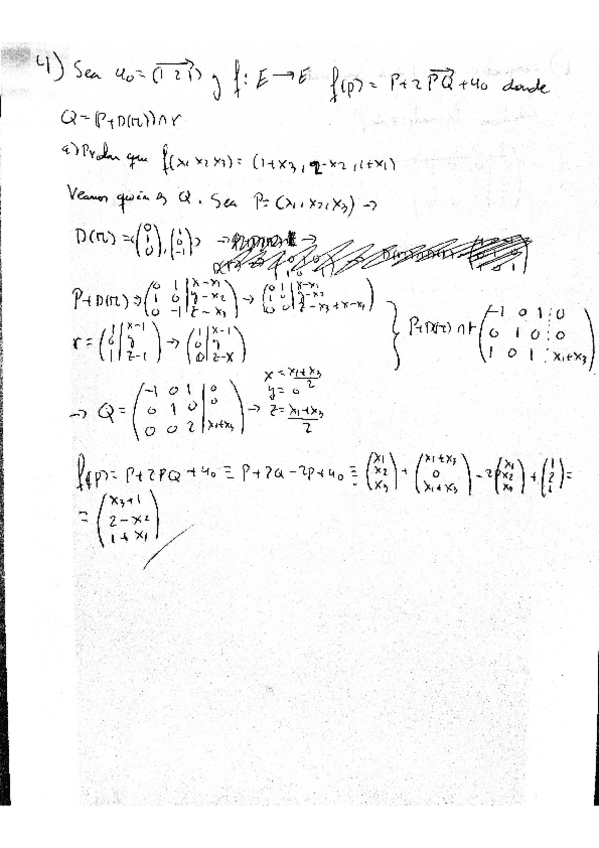 4) Sea u₀=(1 2 1) y f: E→E f(p)= P+2PQ+u₀ donde
Q=(P+D(π))∩r
a) Probar que f(x₁ x₂ x₃)=(1+x₃, 2-x₂, 1+x₁)
Veamos quién es Q. Sea P=(x₁,x₂,x₃)→
D(π)={(0 1 0),(1 0 -1)}
P+D(π)→(0 1 | x-x₁ 1 0 | y-x₂ 0 -1 | z-x₃)→(0 1 | x-x₁ 1 0 | y-x₂ 0 0 | z-x₃+x-x₁)
r=(1 | x-1 0 | y 1 | z-1)→(1 | x-1 0 | y 0 | z-x) } P+D(π)∩r (-1 0 1 | 0 0 1 0 | 0 1 0 1 | x₁+x₃)
→ Q=(-1 0 1 | 0 0 1 0 | 0 0 0 2 | x₁+x₃)→ x=x₁+x₃/2 y=0 z=x₁+x₃/2
f(p)=P+2PQ+u₀≡P+2Q-2P+u₀≡(x₁ x₂ x₃)+(x₁+x₃ 0 x₁+x₃)-2(x₁ x₂ x₃)+(1 2 1)=
=(x₃+1 2-x₂ 1+x₁)